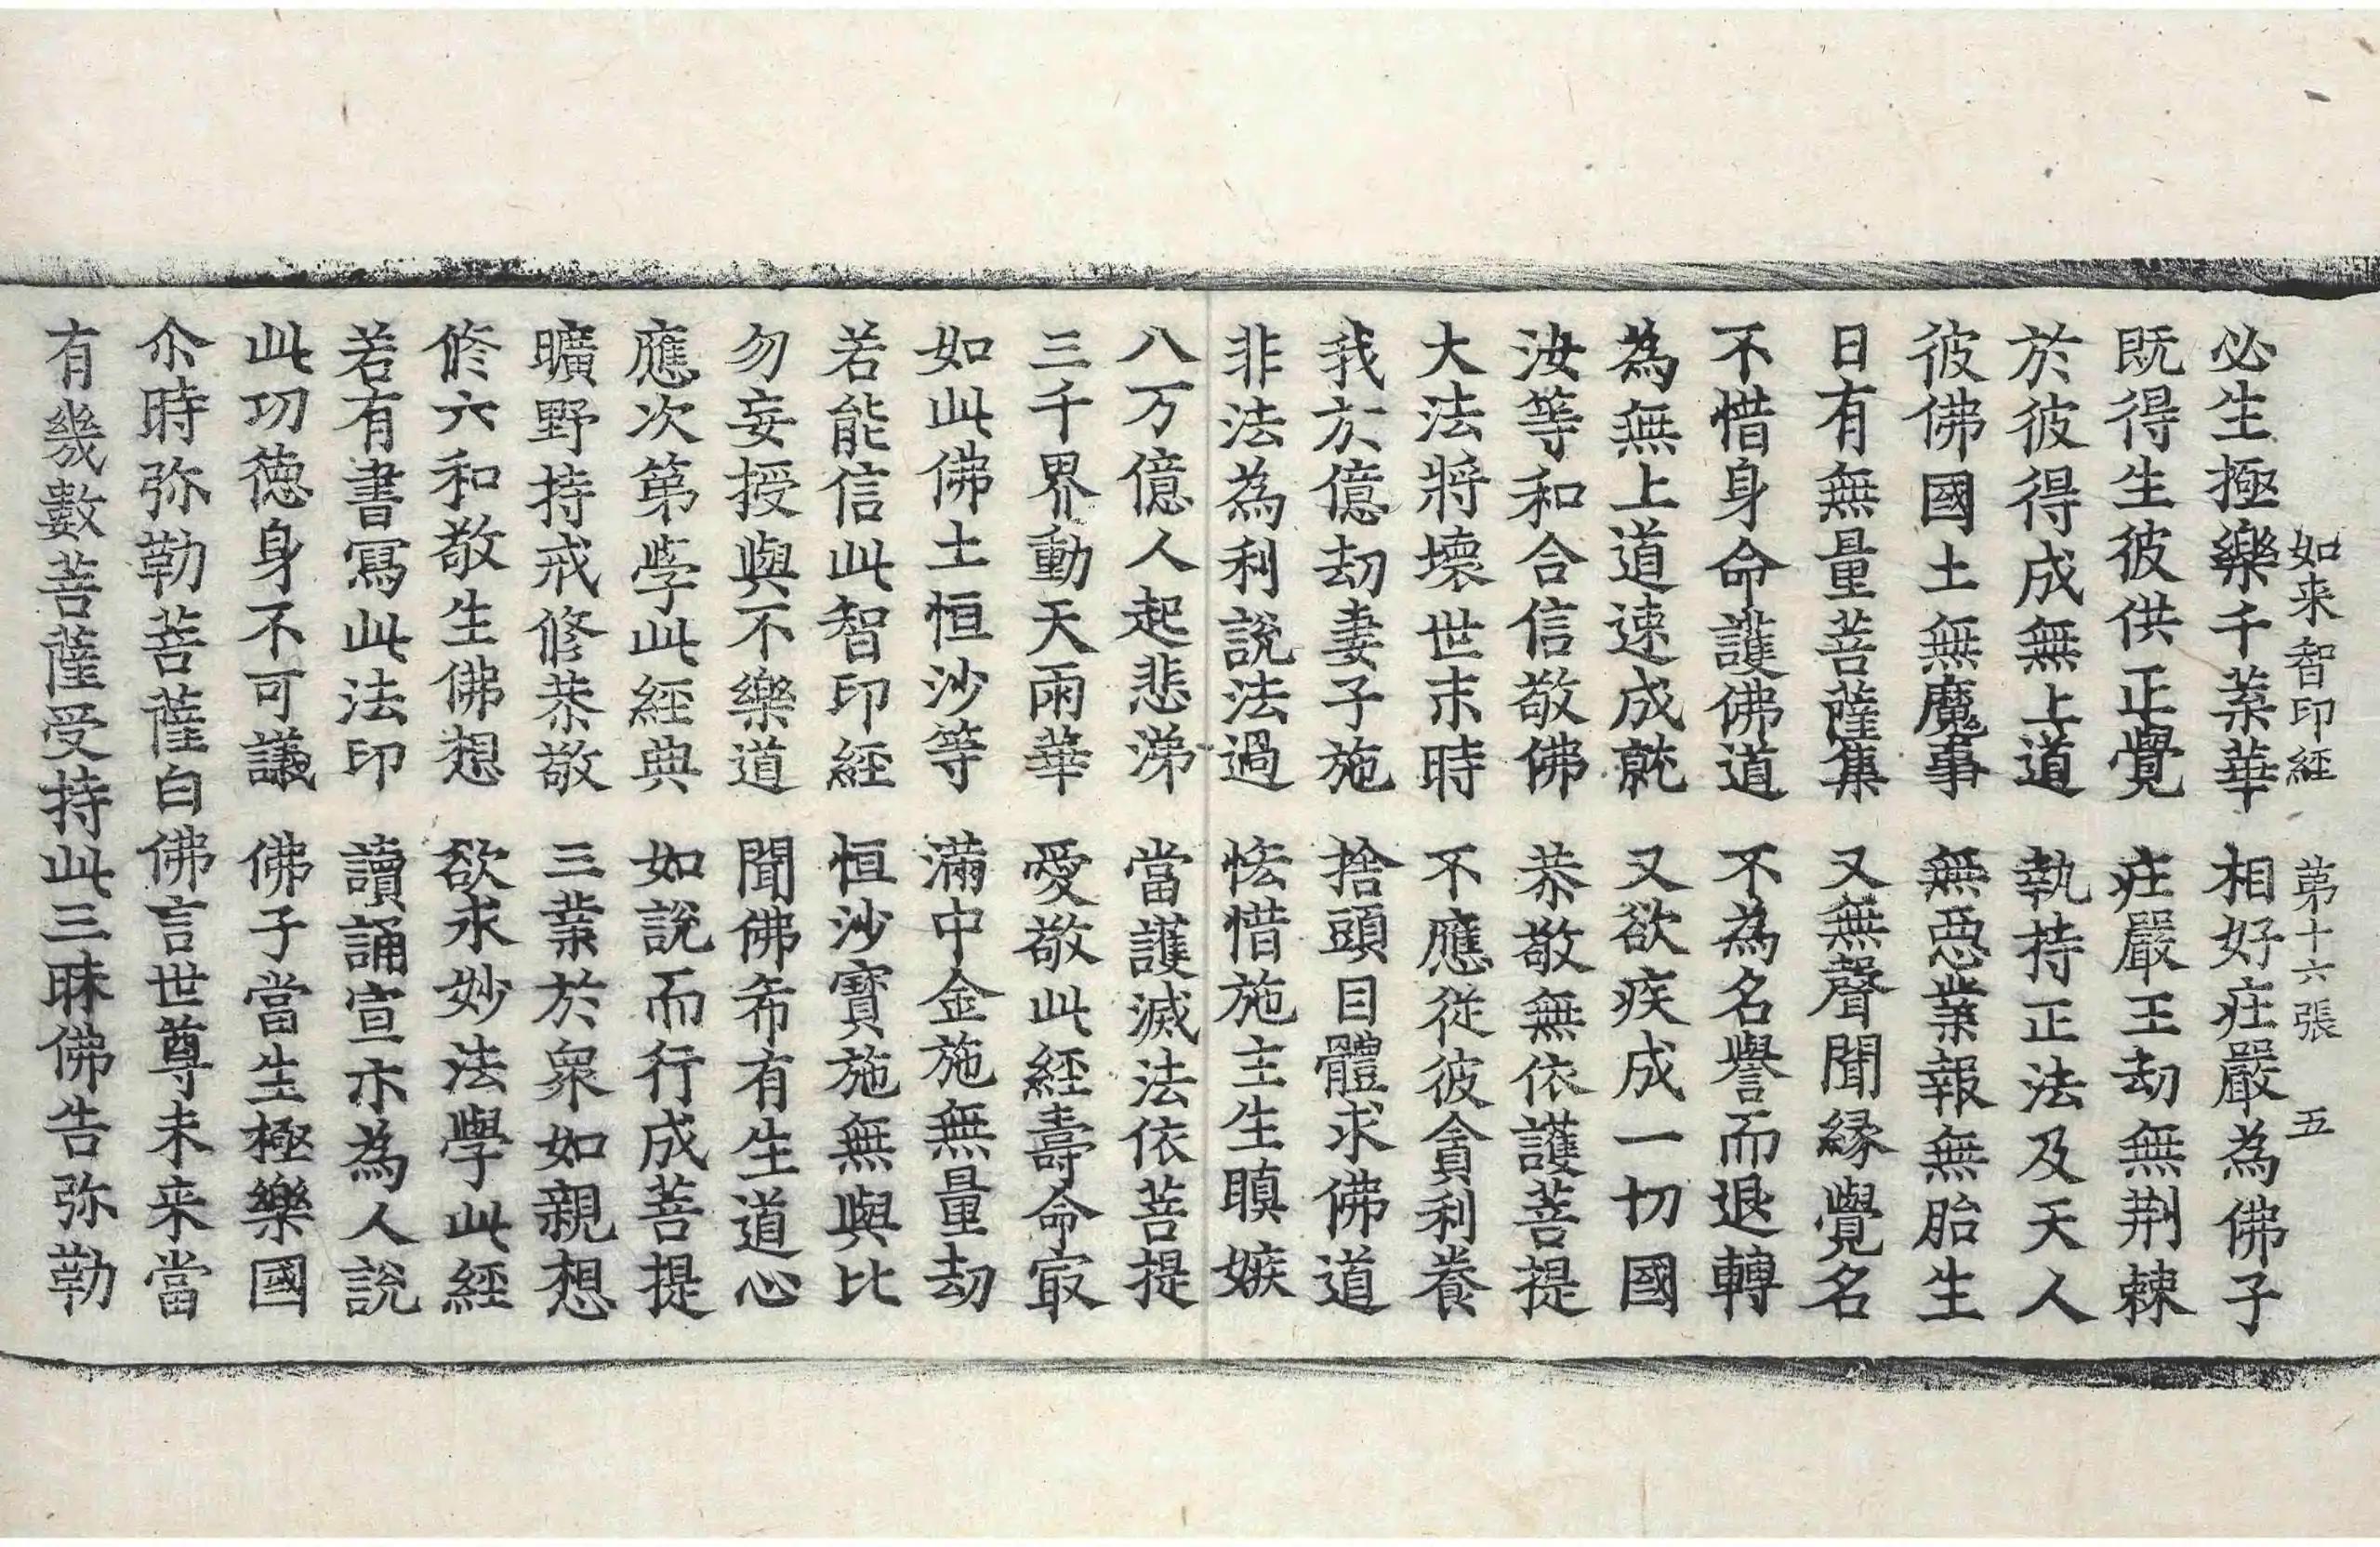 如来智印経　第十六張　五
必生極樂千葉華　相好庄嚴為佛子
既得生彼供正覺　庄嚴王劫無荆棘
於彼得成無上道　執持正法及天人
彼佛國土無魔事　無惡業報無胎生
日有無量菩薩集　又無聲聞縁覺名
不惜身命護佛道　不為名譽而退轉
為無上道速成就　又欲疾成一切國
汝等和合信敬佛　恭敬無依護菩提
大法將壞世末時　不應従彼貪利養
我於億劫妻子施　捨頭目體求佛道
非法為利說法過　恡惜施主生瞋嫉
八万億人起悲涕　當護滅法依菩提
三千界動天雨華　愛敬此經壽命㝡
如此佛土恒沙等　滿中金施無量劫
若能信此智印經　恒沙寶施無與比
勿妄授與不樂道　聞佛希有生道心
應次第学此經典　如說而行成菩提
曠野持戒修恭敬　三業於衆如親想
修六和敬生佛想　欲求妙法學此經
若有書寫此法印　讀誦宣亦為人說
此功德身不可議　佛子當生極樂國
尒時弥勒菩薩白佛言世尊未来當
有幾數菩薩受持此三昧佛告弥勒